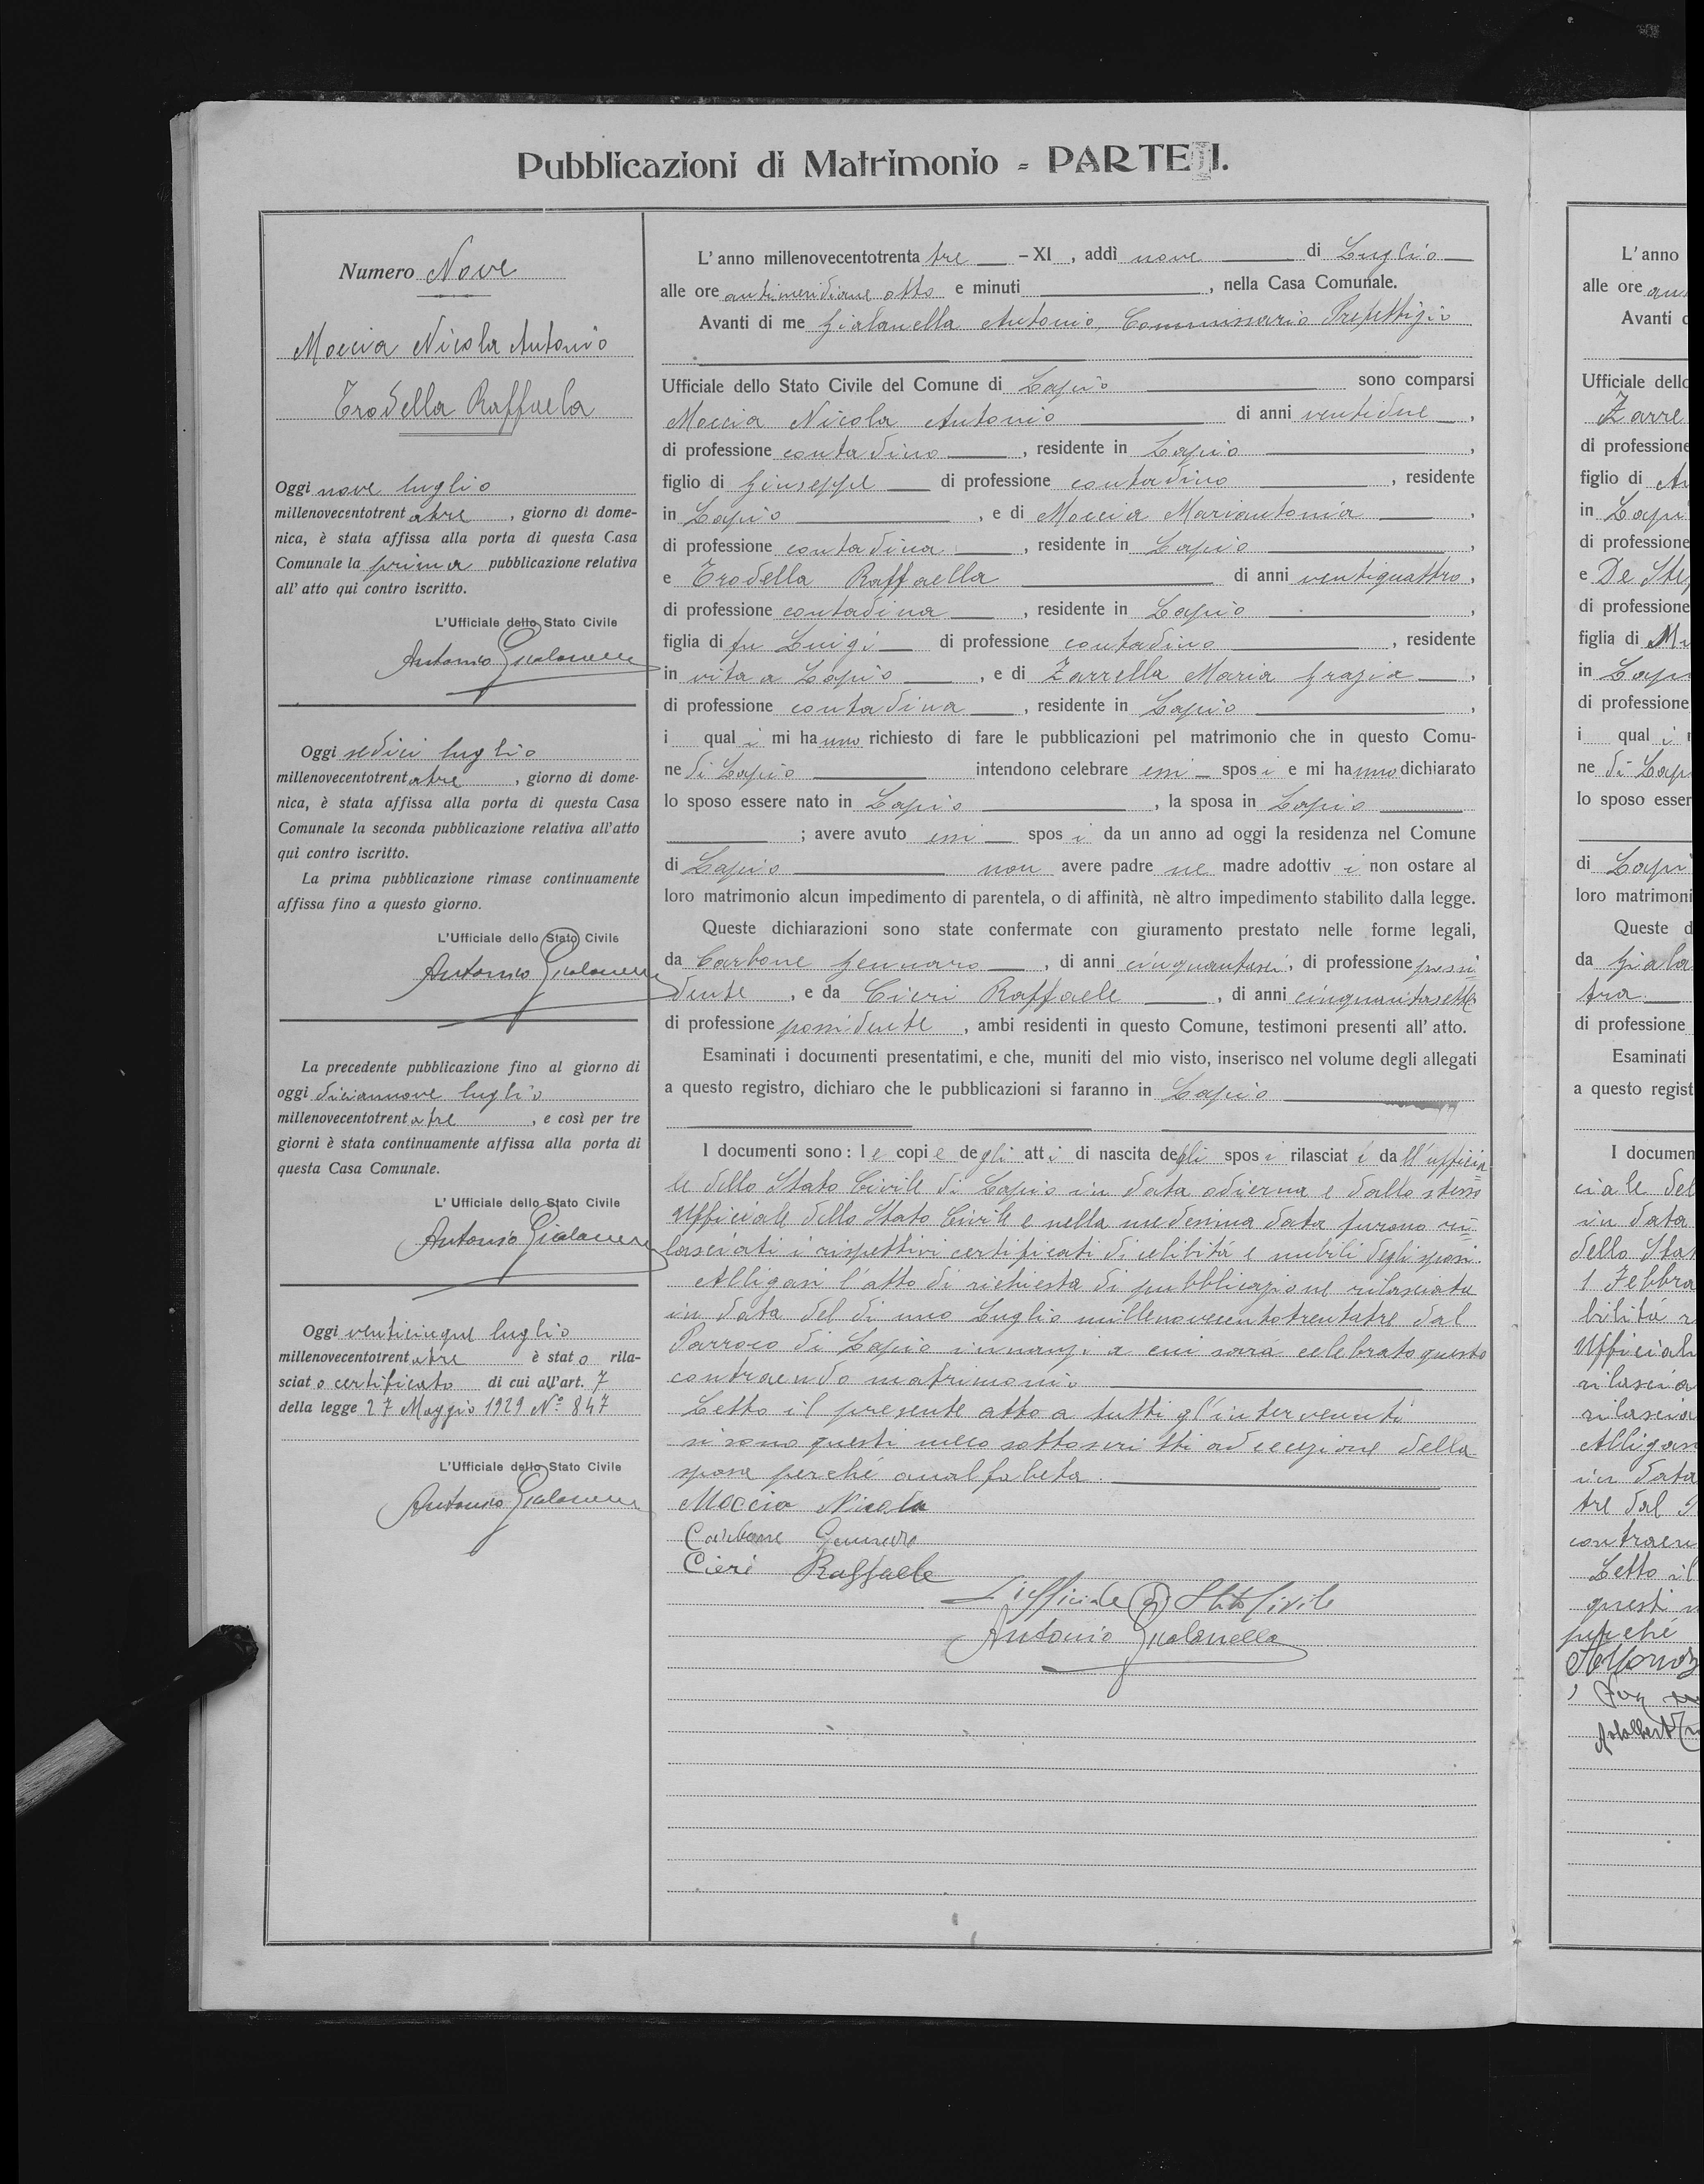 Pubblicazioni di Matrimonio = PARTE I.
Numero Nove
Moccia Nicola Antonio
Trodella Raffaela
Oggi nove luglio
millenovecentotrentatre, giorno di dome-
nica, è stata affissa alla porta di questa Casa
Comunale la prima pubblicazione relativa
all'atto qui contro iscritto.
L'Ufficiale dello Stato Civile
Antonio Gialanella
Oggi sedici luglio
millenovecentotrentatre, giorno di dome-
nica, è stata affissa alla porta di questa Casa
Comunale la seconda pubblicazione relativa all'atto
qui contro iscritto.
La prima pubblicazione rimase continuamente
affissa fino a questo giorno.
L'Ufficiale dello Stato Civile
Antonio Gialanella
La precedente pubblicazione fino al giorno di
oggi diciannove luglio
millenovecentotrentatre, e così per tre
giorni è stata continuamente affissa alla porta di
questa Casa Comunale.
L'Ufficiale dello Stato Civile
Antonio Gialanella
Oggi venticinque luglio
millenovecentotrentatre è stato rila-
sciato certificato di cui all'art. 7
della legge 27 Maggio 1929 No. 847
L'Ufficiale dello Stato Civile
Antonio Gialanella
L'anno millenovecentotrentatre - XI, addì nove di Luglio
alle ore antimeridiane otto e minuti , nella Casa Comunale.
Avanti di me Gialanella Antonio, Commissario Prefettizio
Ufficiale dello Stato Civile del Comune di Lapio sono comparsi
Moccia Nicola Antonio di anni ventidue,
di professione contadino, residente in Lapio,
figlio di Giuseppe di professione contadino, residente
in Lapio, e di Moccia Mariantonia,
di professione contadina, residente in Lapio,
e Trodella Raffaella di anni ventiquattro,
di professione contadina, residente in Lapio,
figlia di fu Luigi di professione contadino, residente
in vita a Lapio, e di Zarrella Maria Grazia,
di professione contadina, residente in Lapio,
i quali mi hanno richiesto di fare le pubblicazioni pel matrimonio che in questo Comu-
ne di Lapio intendono celebrare essi sposi e mi hanno dichiarato
lo sposo essere nato in Lapio, la sposa in Lapio
; avere avuto essi sposi da un anno ad oggi la residenza nel Comune
di Lapio non avere padre ne madre adottivi non ostare al
loro matrimonio alcun impedimento di parentela, o di affinità, nè altro impedimento stabilito dalla legge.
Queste dichiarazioni sono state confermate con giuramento prestato nelle forme legali,
da Carbone Gennaro, di anni cinquantasei, di professione possi=
dente, e da Cieri Raffaele, di anni cinquantasette
di professione possidente, ambi residenti in questo Comune, testimoni presenti all'atto.
Esaminati i documenti presentatimi, e che, muniti del mio visto, inserisco nel volume degli allegati
a questo registro, dichiaro che le pubblicazioni si faranno in Lapio
I documenti sono: le copie degli atti di nascita degli sposi rilasciati dall'ufficia=
le dello Stato Civile di Lapio in data odierna e dallo stesso
Ufficiale dello Stato Civile e nella medesima data furono ri=
lasciati i rispettivi certificati di celibità e nubili degli sposi.
Alligasi l'atto di richiesta di pubblicazione rilasciata
in data del dì uno Luglio millenovecentotrentatre dal
Parroco di Lapio innanzi a cui sarà celebrato questo
contraendo matrimonio
Letto il presente atto a tutti gl'intervenuti
si sono questi meco sottoscritti ad eccezione della
sposa perché analfabeta.
Moccia Nicola
Carbone Gennaro
Cieri Raffaele
L'ufficiale di Stato Civile
Antonio Gialanella
L'anno
alle ore
Avanti
Ufficiale dello
Zarre
di professione
figlio di
in Lapi
di professione
e De Ste
di professione
figlia di
in Lapi
di professione
i quali
ne di Lap
lo sposo esser
di Lapi
loro matrimoni
Queste d
da Giala
tra
di professione
Esaminati
a questo regist
I documen
ciale del
in data
dello Stat
1 Febbra
bilità
Ufficial
rilascia
rilascia
Alligas
in data
tre dal
contraen
Letto il
questi
perché